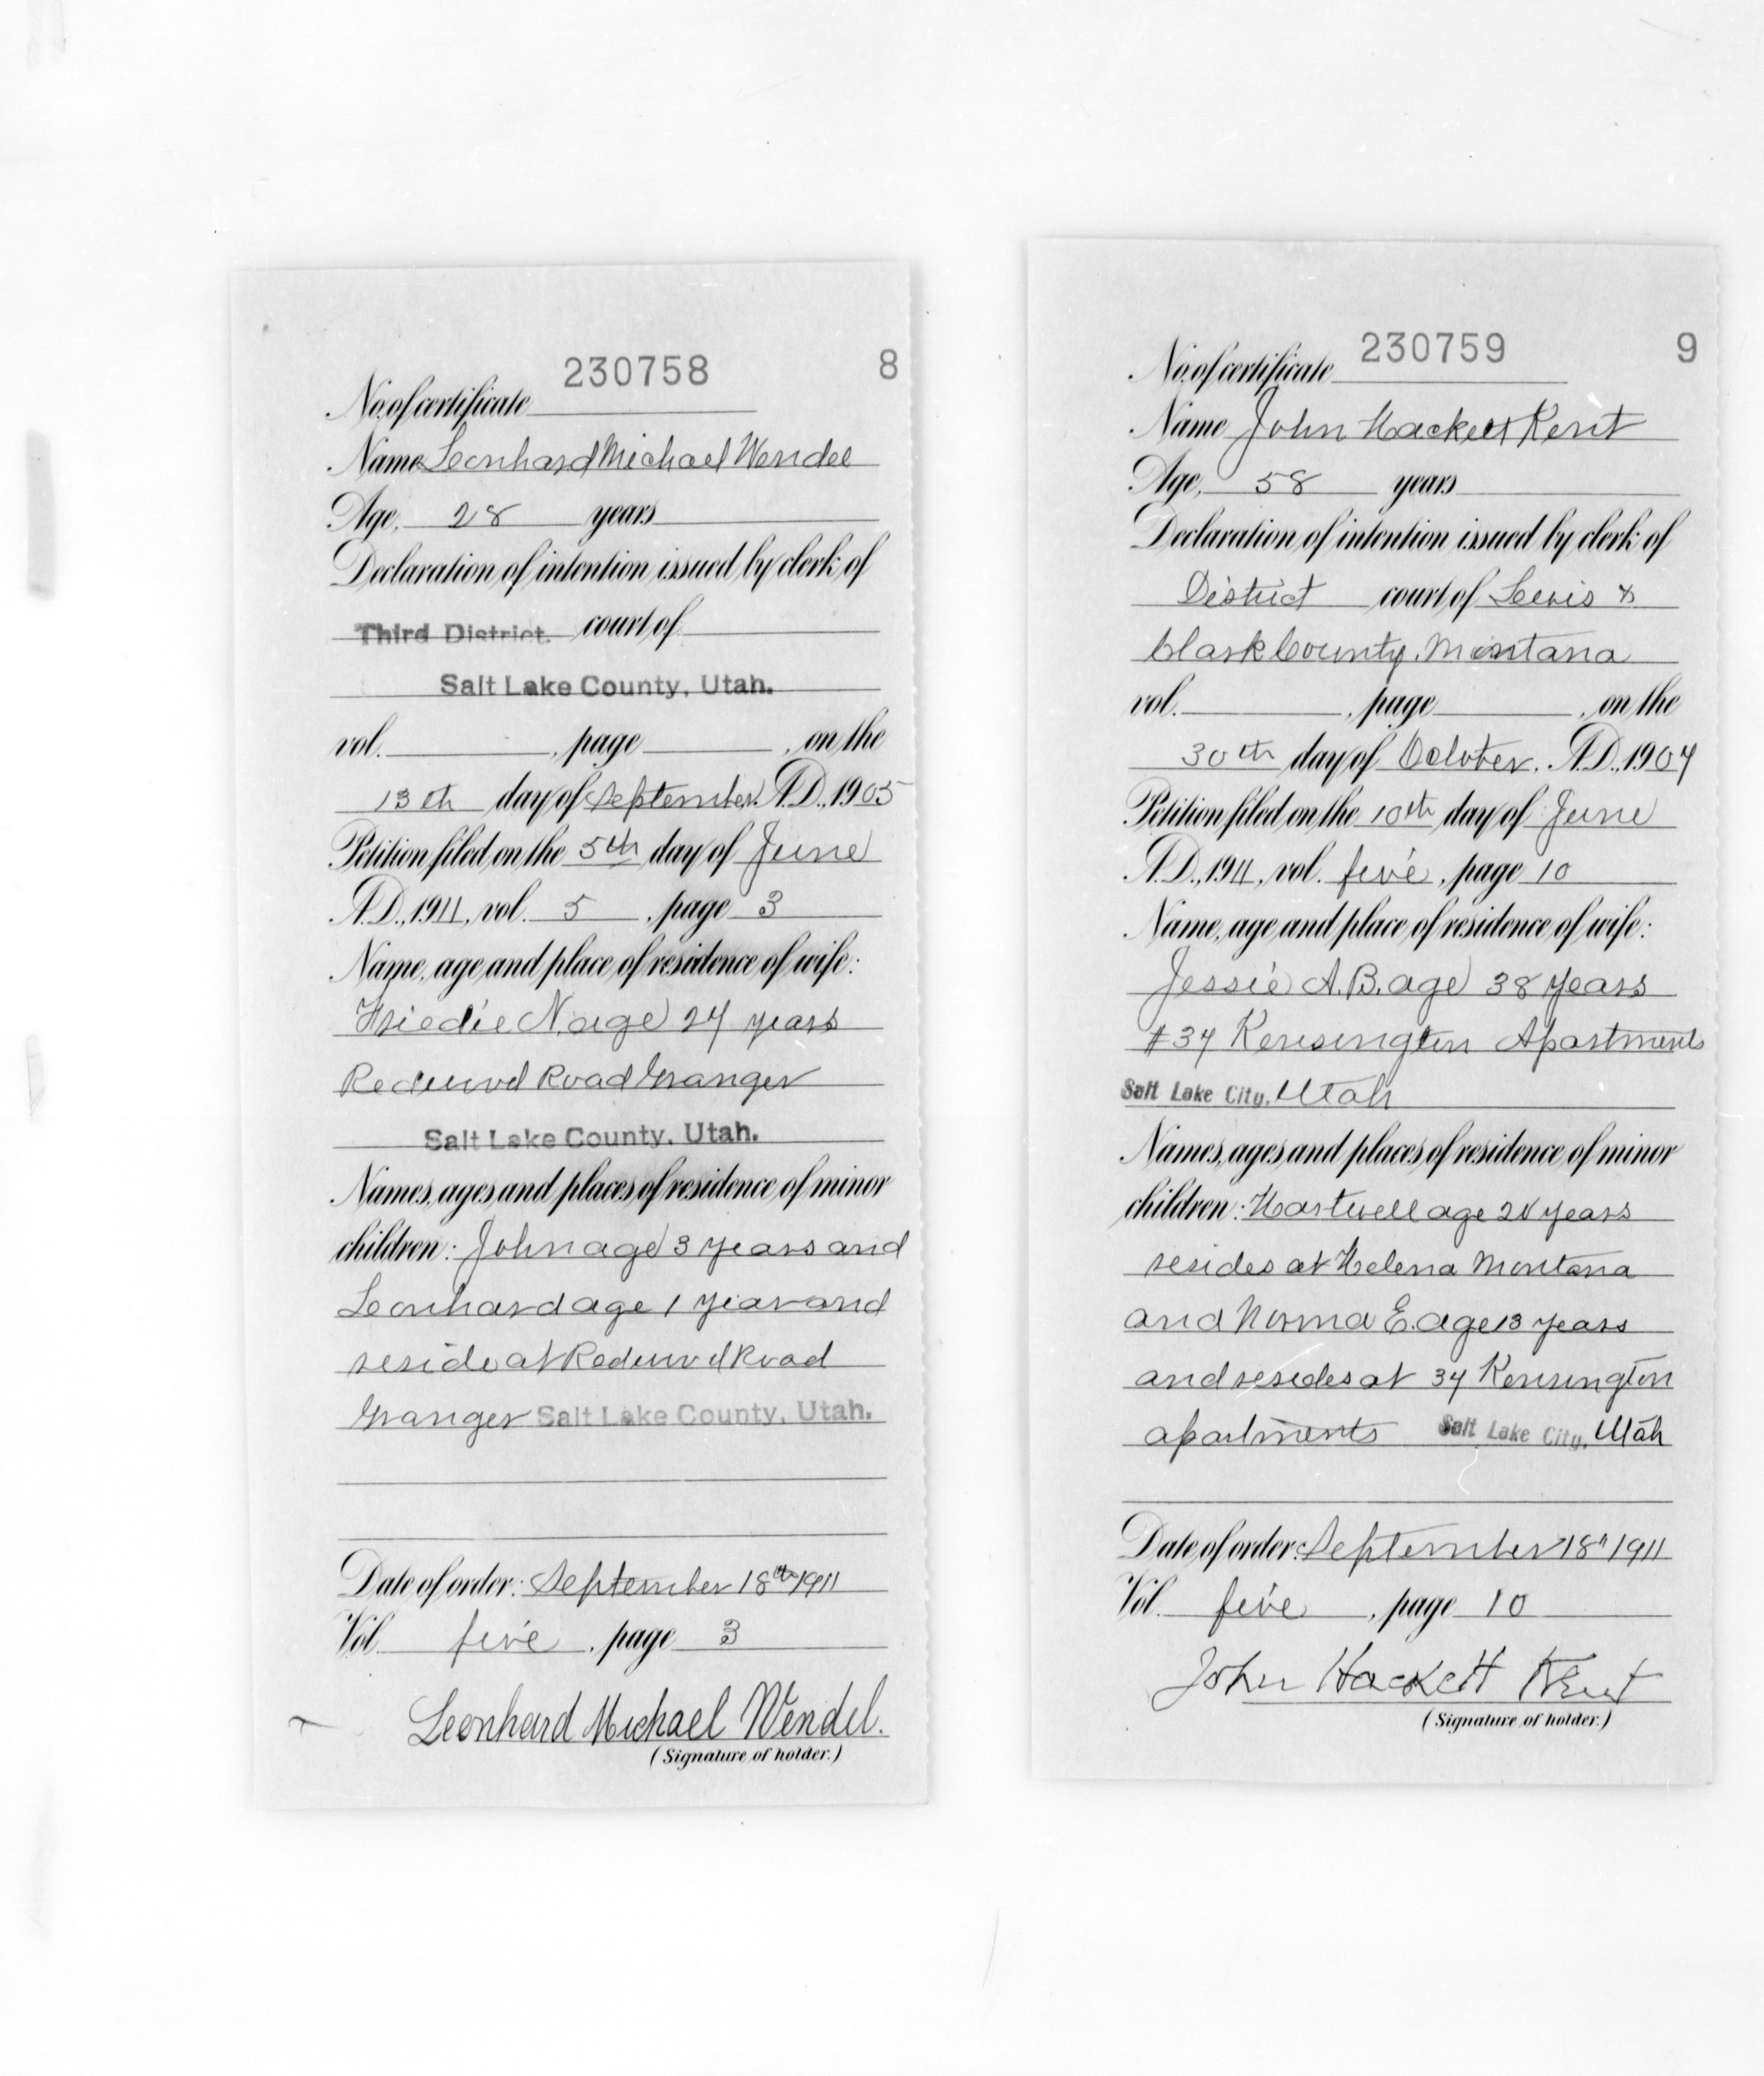 230758 8
No. of certificate
Name Leonhard Michael Wendel
Age, 28 years
Declaration of intention issued by clerk of
Third District. court of
Salt Lake County, Utah.
vol. , page , on the
13th day of September. A.D., 1905
Petition filed on the 5th day of June
A.D., 1911, vol. 5 , page 3
Name, age and place of residence of wife:
Friedie N. age 27 years
Redwood Road Granger
Salt Lake County, Utah.
Names, ages and places of residence of minor
children: John age 3 years and
Leonhard age 1 year and
reside at Redwood Road
Granger Salt Lake County, Utah.
Date of order: September 18th 1911
Vol. five , page 3
Leonhard Michael Wendel.
(Signature of holder.)
230759 9
No. of certificate
Name John Hackett Kent
Age, 58 years
Declaration of intention issued by clerk of
District court of Lewis &
Clark County, Montana
vol. , page , on the
30th day of October. A.D., 1907
Petition filed on the 10th day of June
A.D., 1911, vol. five , page 10
Name, age and place of residence of wife:
Jessie A. B. age 38 years
#37 Kensington Apartments
Salt Lake City, Utah
Names, ages and places of residence of minor
children: Hartwell age years
resides at Helena Montana
and Norma E. age 13 years
and resides at 37 Kensington
apartments Salt Lake City, Utah
Date of order: September 18" 1911
Vol. five , page 10
John Hackett Kent
(Signature of holder.)